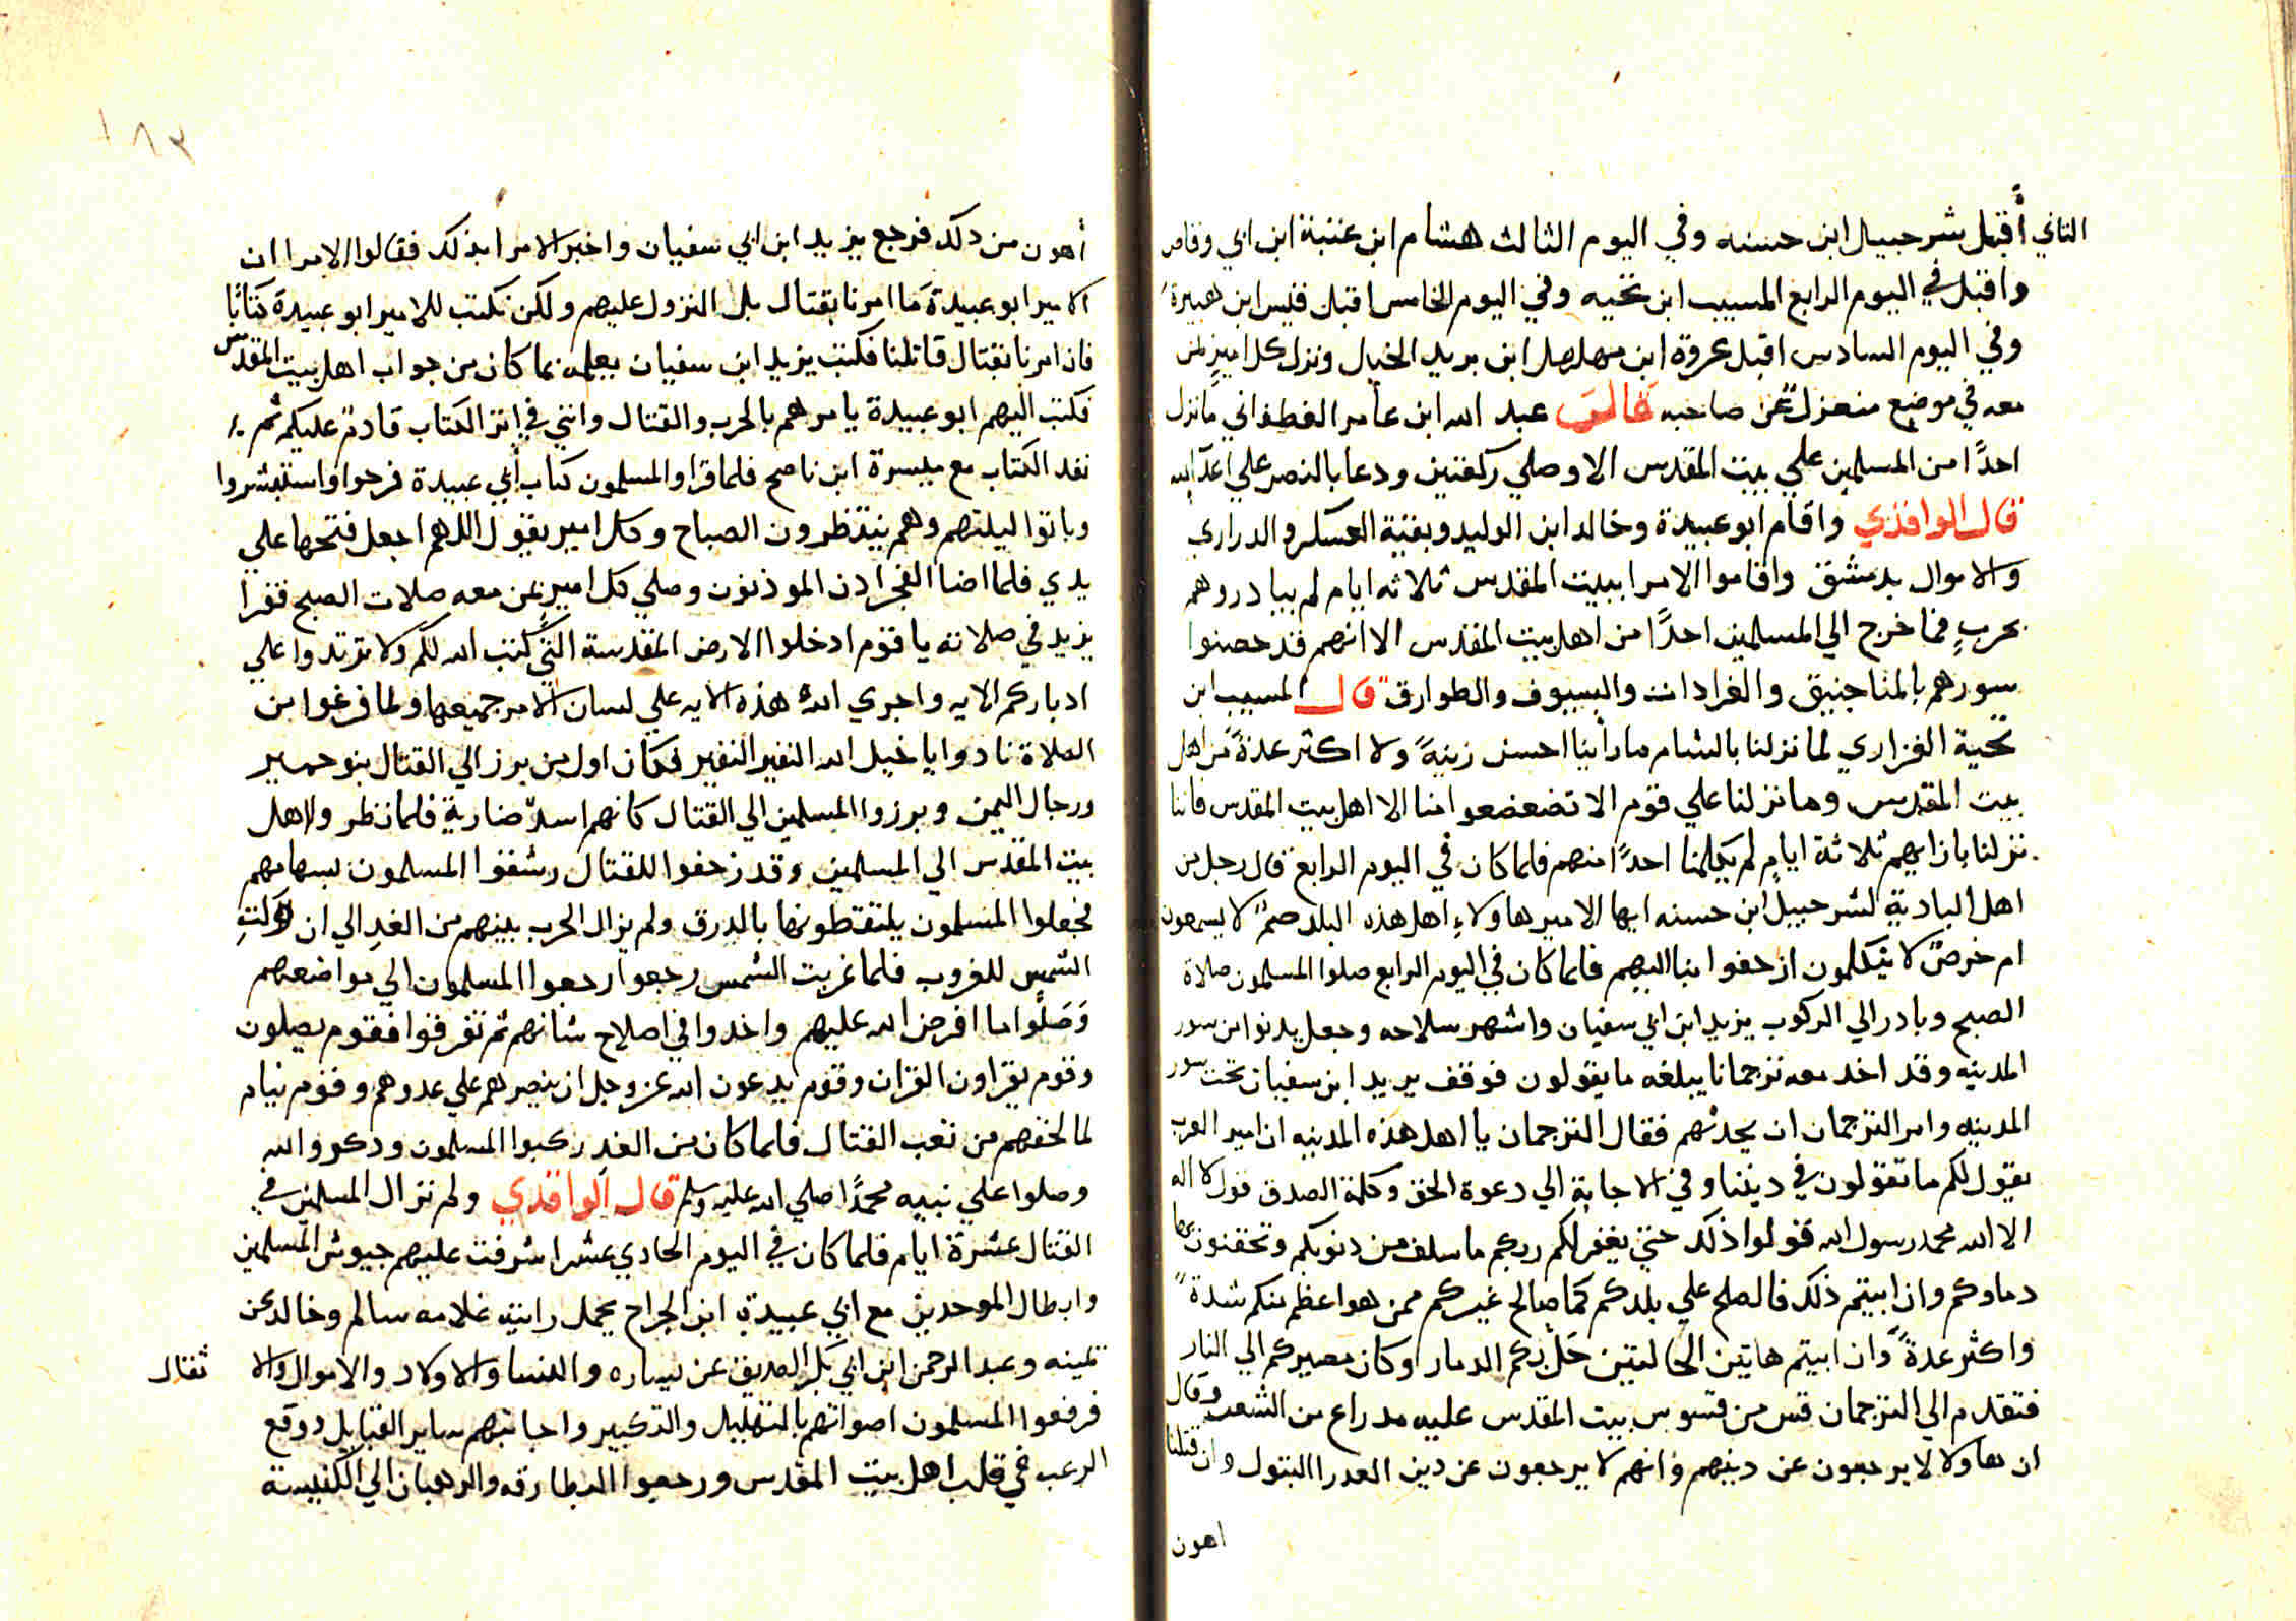 الثاني أقبل شرحبيل ابن حسنه وفي اليوم الثالث هشام ابن عتبة ابن ابي وقاص
واقبل في اليوم الرابع المسيب ابن نخيه وفي اليوم الخامس اقبل قيس ابن هبيرة
وفي اليوم السادس اقبل عروة ابن مهلهل ابن يزيد الخيال ونزل كل امير بمن
معه في موضع منعزل عن صاحبه قال عبد الله ابن عامر الغطفاني ما نزل
احدًا من المسلمين علي بيت المقدس الا وصلي ركعتين ودعا بالنصر علي اعدآ الله
قال الواقدي واقام ابو عبيدة وخالد ابن الوليد وبقية العسكر والدراري
والاموال بدمشق واقاموا الامرا ببيت المقدس ثلاثه ايام لم يبادروهم
بحربٍ فما خرج الي المسلمين احدًا من اهل بيت المقدس الا انهم قد حصنوا
سورهم بالمناجنيق والعرادات والسيوف والطوارق قال المسيب ابن
نخية الفزاري لما نزلنا بالشام ما رأينا احسن زينةً ولا اكثر عدةً من اهل
بيت المقدس وما نزلنا علي قوم الا تضعضعوا منا الا اهل بيت المقدس فاننا
نزلنا بازايهم ثلاثة ايامٍ لم يكلمنا احدًا منهم فلما كان في اليوم الرابع قال رجل من
اهل البادية لشرحبيل ابن حسنه ايها الامير هاولاءِ اهل هذه البلد صمٌ لا يسمعون
ام خرصٌ لا يتكلمون ازحفوا بنا اليهم فلما كان في اليوم الرابع صلوا المسلمون صلاة
الصبح وبادر الي الركوب يزيد ابن ابي سفيان واشهر سلاحه وجعل يدنوا من سور
المدينه وقد اخد معه ترجمانا يبلغه ما يقولون فوقف يزيد ابن سفيان تحت سور
المدينه وامر الترجمان ان يحدثهم فقال الترجمان يا اهل هذه المدينه ان امير العرب
يقول لكم ما تقولون في ديننا وفي الاجابة الي دعوة الحق وكلمة الصدق قول لا اله
الا الله محمد رسول الله قولوا ذلك حتي يغفر لكم ربكم ما سلف من دنوبكم وتحقنون بها
دماوكم وان ابيتم ذلك فالصلح علي بلدكم كما صالح غيركم ممن هو اعظم منكم شدةً
واكثر عدةً وان ابيتم هاتين الحالتين حَل بكم الدمار وكان مصيركم الي النار
فتقدم الي الترجمان قس من قسوس بيت المقدس عليه مدراع من الشعر وقال
ان هاولا لا يرجعون عن دينهم وانهم لا يرجعون عن دين العدرا البتول وان قتلنا
اهون
١٨٣
أهون من دلك فرجع يزيد ابن ابي سفيان واخبر الامرا بذلك فقالوا الامرا ان
الامير ابو عبيدة مَا امرنا بقتال بل النزول عليهم ولكن نكتب للامير ابو عبيدة كتابًا
فان امرنا بقتال قاتلنا فكتب يزيد ابن سفيان يعلمه بما كان من جواب اهل بيت المقدس
فكتب اليهم ابو عبيدة يامرهم بالحرب والقتال وانني في اثر الكتاب قادم عليكم ثم
نفد الكتاب مع ميسرة ابن ناصح فلما قراو المسلمون كتاب أبي عبيدة فرحوا واستبشروا
وباتوا ليلتهم وهم ينتظرون الصباح وكل امير يقول اللهم اجعل فتحها علي
يدي فلما اضا الفجر ادن الموذنون وصلي كل امير بمن معه صلات الصبح فقرا
يزيد في صلاته يا قوم ادخلوا الارض المقدسة التي كتب الله لكم ولا ترتدوا علي
ادباركم الايه واجري الله هذه الايه علي لسان الامر جميعها ولما فرغوا من
الصلاة نادوا يا خيل الله النفير النفير فكان اول من برز الي القتال بنو حمير
ورجال اليمن وبرزوا المسلمين الي القتال كانهم اسدٌ ضارية فلما نظروا اهل
بيت المقدس الي المسلمين وقد زحفوا للقتال رشقوا المسلمون بسهامهم
فجعلوا المسلمون يلتقطونها بالدرق ولم يزال الحرب بينهم من الغدِ الي ان
الشمس للغروب فلما غربت الشمس رجعوا المسلمون الي مواضعهم
وَصَلّوا ما افرض الله عليهم واخدوا في اصلاح شانهم ثم تفرقوا فقوم يصلون
وقوم يقراون القران وقوم يدعون الله عز وجل ان ينصرهم علي عدوهم وقوم نيام
لما لحقهم من تعب القتال فلما كان من الغدِ ركبوا المسلمون ودكروا الله
وصلوا علي نبيه محمدًا صلي الله عليه وسلم قال الواقدي ولم تزال المسلمين في
القتال عشرة ايام فلما كان في اليوم الحادي عشر اشرفت عليهم جيوش المسلمين
وابطال الموحدين مع ابي عبيدة ابن الجراح يحمل رايته غلامه سالم وخالد عن
يمينه وعبد الرحمن ابن ابي بكر الصديق عن يساره والنسا والاولاد والاموال والا ثقال
فرفعوا المسلمون اصواتهم بالتهليل والتكبير واجابتهم ساير القبايل ووقع
الرعب في قلب اهل بيت المقدس ورجعوا البطارقه والرهبان الي الكنيسة